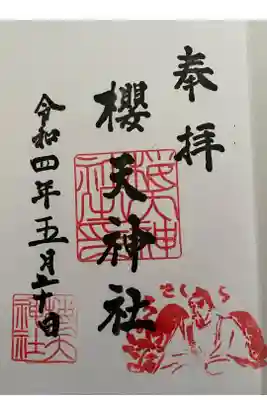 奉拝
櫻天神社
令和四年五月二十日
さくら